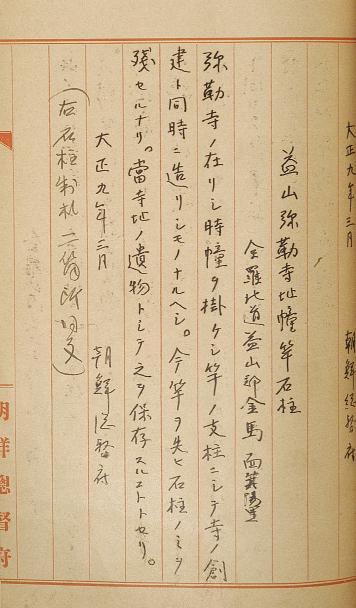 大正九年三月　朝鮮總督府
益山弥勒寺址幢竿石柱
全羅北道益山郡金馬面箕陽里
弥勒寺ノ在リシ時幢ヲ掛ケシ竿ノ支柱ニシテ寺ノ創
建ト同時ニ造リシモノナルヘシ。今竿ヲ失ヒ石柱ノミヲ
残セルナリ。當寺址ノ遺物トシテ之ヲ保存スルコトトセリ。
大正九年三月　朝鮮总督府
（右石柱制札二箇所同文）
朝鮮總督府